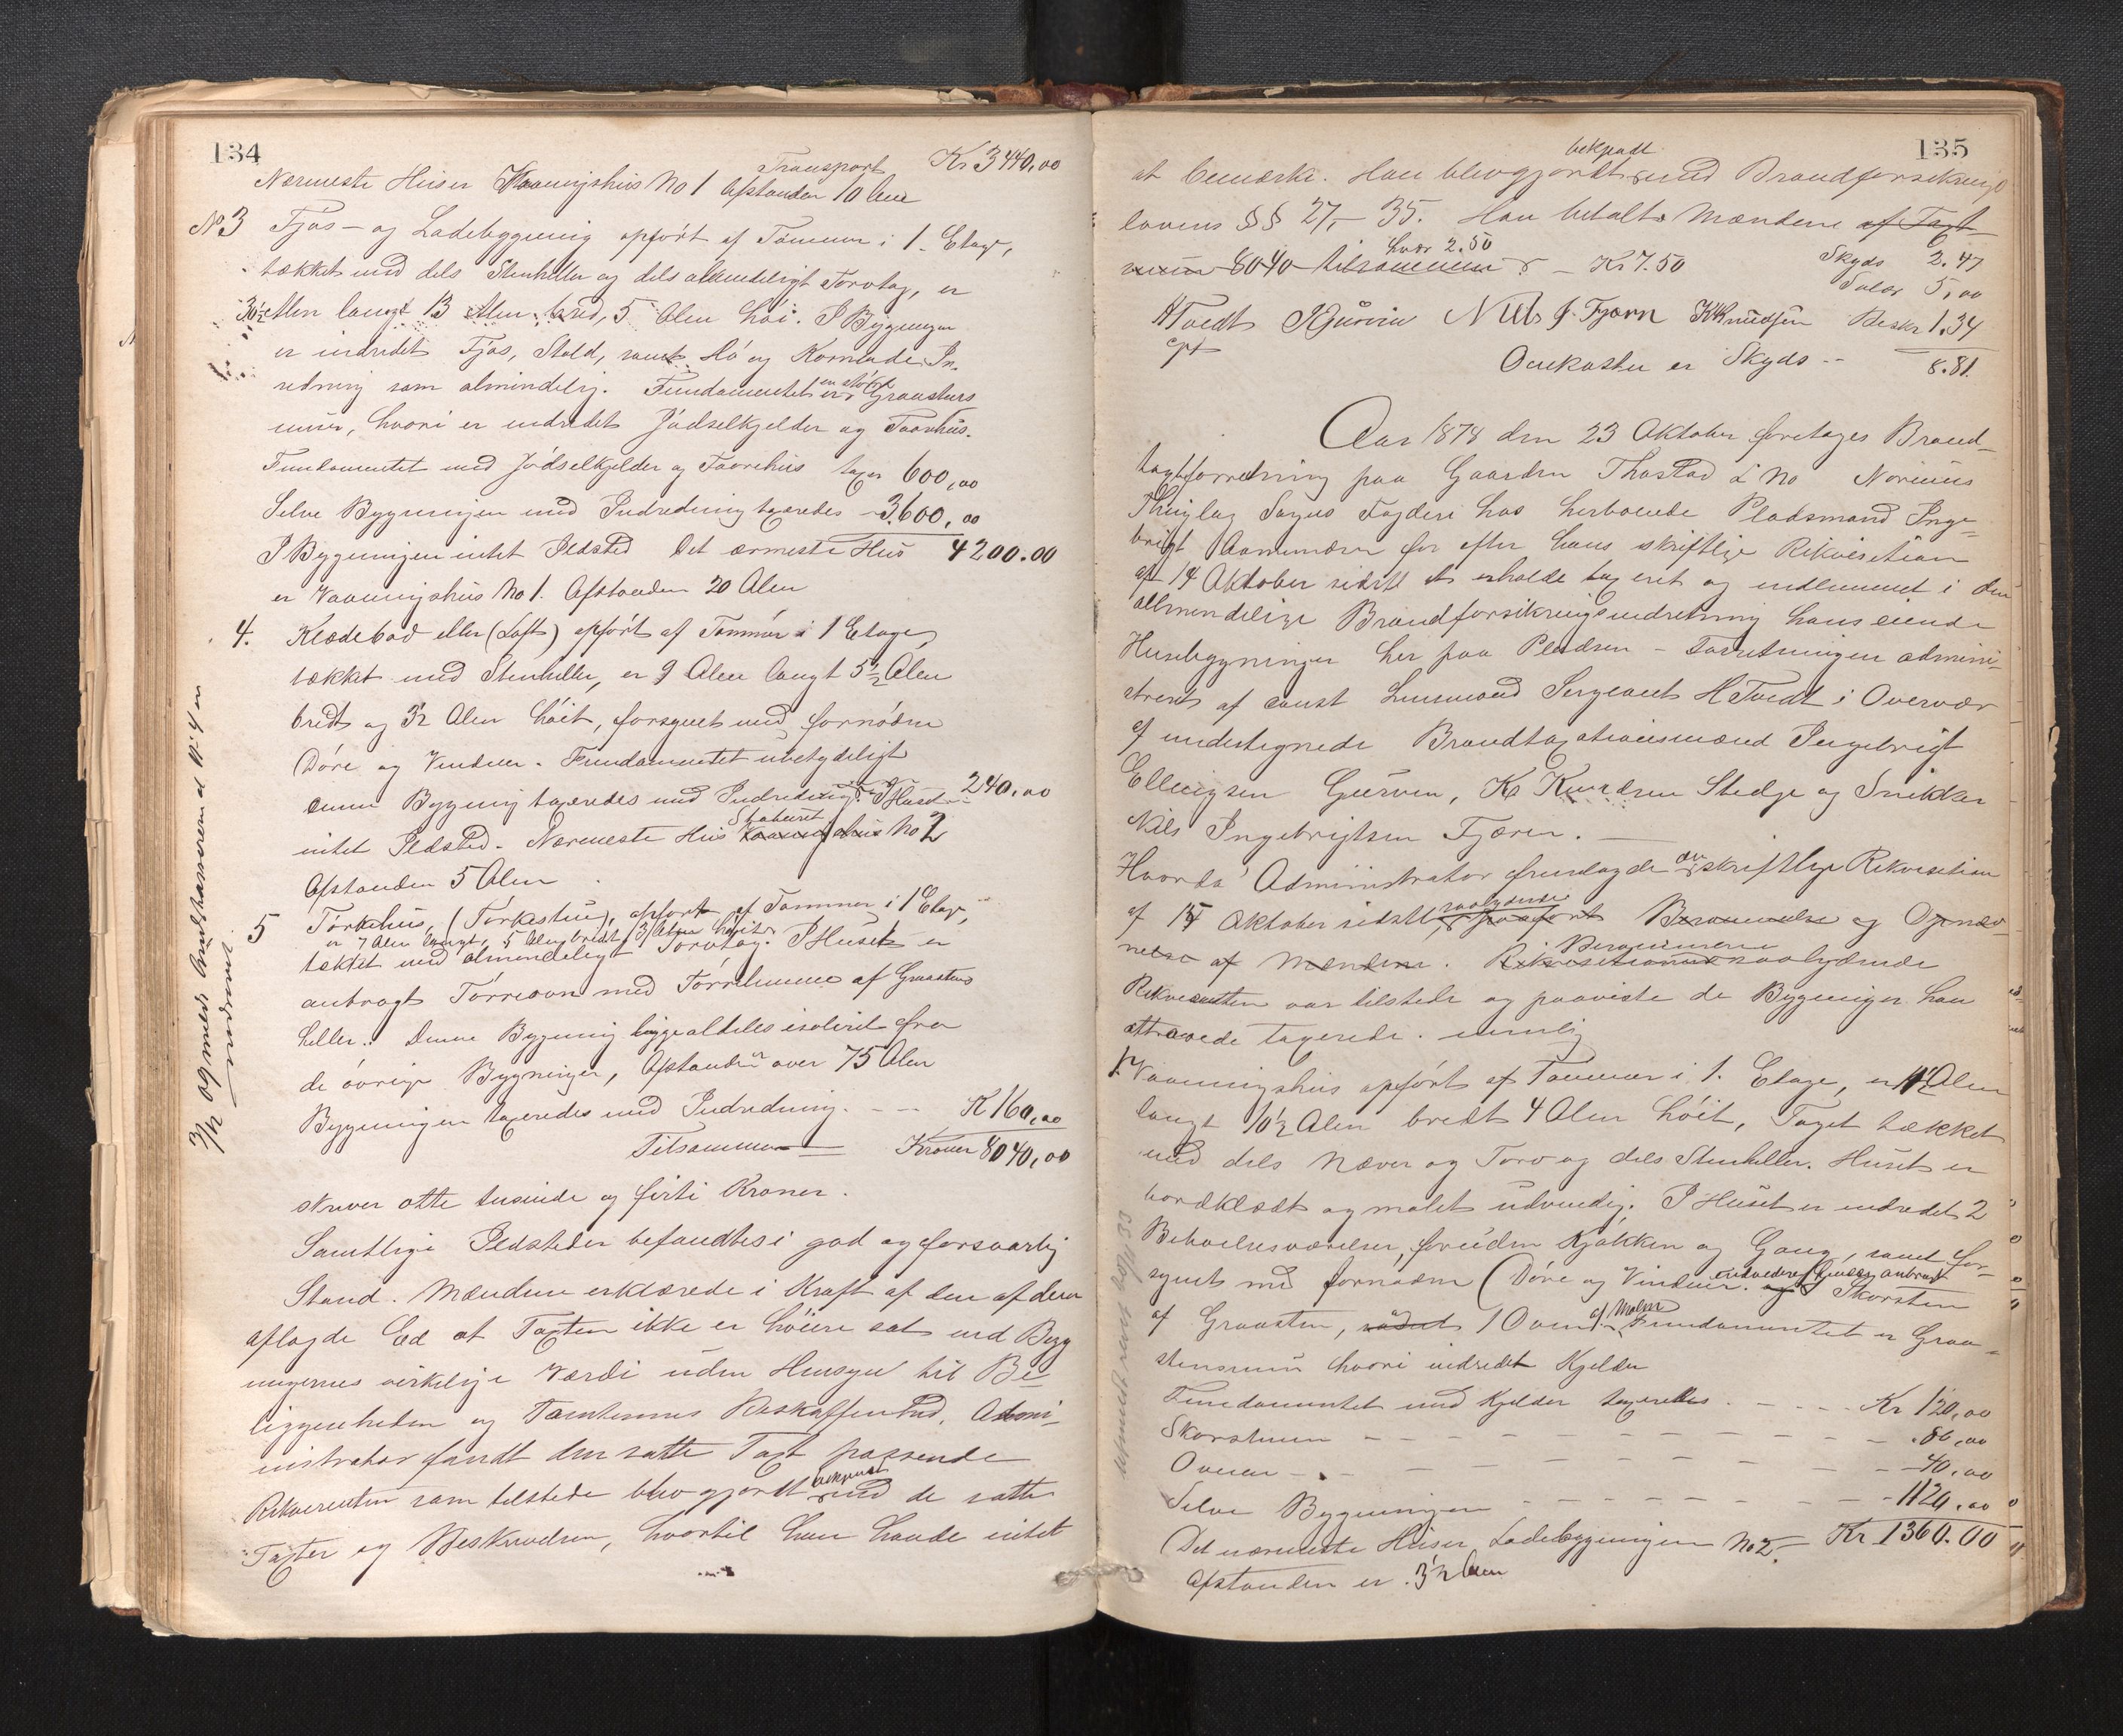 134
Transport Kr 3440,00
Nærmeste Huser Vaaningshus No 1 Afstanden 10 Alen
No 3 Fjøs- og Ladebygning opført af Tømmer i 1. Etage,
tækket med dels Stenheller og dels almindeligt Torvtag, er
30½ Alen langt 13 Alen bred, 5 Alen høi. I Bygningen
er indredet Fjøs, Stald, samt Hø og Kornlade In-
redning som almindelig. Fundamentet er en større Graastens
muur, hvori er indredet Gjødselkjelder og
Fundamentet med Gjødselkjelder og taxer 600,00
Selve Bygningen med Indredning taxeredes - 3600,00
I Bygningen intet Ildsted Det nærmeste Hus 4200.00
er Vaaningshus No 1. Afstanden 20 Alen
4. Klædebod eller (Loft) opført af Tømmer i 1 Etage,
tækket med Stenheller, er 9 Alen langt 5½ Alen
bredt og 3½ Alen høit, forsynet med fornødne
Døre og Vinduer. Fundamentet ubetydeligt
denne Bygning taxeredes med Indredning. I Huset 240,00
intet Ildsted. Nærmeste Hus Stabburet Vaaningshus No 2
Afstanden 5 Alen
5 Tørkehus, (Tørkestue), opført af Tømmer i 1 Etage,
er 7 Alen langt, 5 Alen bredt, 3 Alen høit
tækket med almindeligt Torvtag. I Huset er
anbragt Tørreovn med Tørrelumme af Graastens
heller. Denne Bygning ligger aldeles isoleret fra
de øvrige Bygninger, Afstanden over 75 Alen
Bygningen taxeredes med Indredning. - - K 160,00
Tilsammen Kroner 8040,00
skriver otte tusinde og førti Kroner.
Samtlige Ildsteder befandtes i god og forsvarlig
Stand. Mændene erklærede i Kraft af den af dem
aflagde Ed at Taxten ikke er høiere sat end Byg
ningernes virkelige Værdi uden Hensyn til Be-
liggenheden og Tomternes Beskaffenhed. Admi-
nistrator fandt den satte Taxt passende
Rekvirenten som tilstede blev gjort bekjendt med de satte
Taxter og Beskrivelsen, hvortil han havde intet
3/12 No 4 er
undermuret.
135
at bemærke. Han blev gjordt bekjendt med Brandforsikrings
lovens §§ 27,- 35. Han betalte Mændene af Taxt
summen 8040 tilsammen hver 2.50 - Kr 7.50 Skyds 2.47
Salær 5,00
H Tvedt I E Gurvin Nils J. Fjærn K K Knudsen Beskr 1.34
cst
Omkostn er Skyds -- 8.81.
Aar 1878 den 23 Oktober foretages Brand-
taxtforretning paa Gaarden Thastad L No Norums
Thinglag Sogns Fogderi hos herboende Pladsmand Inge-
brigt for efter hans skriftlige Rekvisition
af 14 Oktober sidstl at erholde taxeret og indlemmet i den
allmendelige Brandforsikringsindretning hans eiende
Husebygninger her paa Pladsen - Forretningen admini-
streres af const Lensmand Sergeant H Tvedt i Overvær
af undertegnede Brandtaxationsmænd Ingebrigt
Ellingsen Gurvin, K K Knudsen Stedje og Snikker
Nils Ingebrigtsen Fjæren.
Hvorda Administrator fremlagde den skriftlige Rekvisition
af 14 Oktober sidstl saalydende paaført Berammelse og Opnæv-
nelse af Mændene. Rekvisitionen Berammelsen saalydende
Rekvirenten var tilstede og paaviste de Bygninger han
attraaede taxerede. nemlig
1. Vaaningshus opført af Tømmer i 1. Etage, er 11½ Alen
langt 10½ Alen bredt 4 Alen høit, Taget tækket
med dels Næver og Torv og dels Stenheller. Huset er
bordklædt og malet udvendig. I Huset er indredet 2
Beboelsesværelser, foruden Kjøkken og Gang, samt for-
synet med fornødne (Døre og Vinduer. og indvendig anbragt Skorsten
af Graasten, 1 Ovn af Malm Fundamentet er Graa-
stensmuur hvori indredet Kjelder
Fundamentet med Kjelder taxeredes. - - - Kr 120,00
Skorstenen - - - - - - - - - 80,00
Ovnen - - - - - - - - - 40,00
Selve Bygningen - - - - - - - 1120,00
Det nærmeste Huser Ladebygningen No 2. - Kr 1360.00
Afstanden er 3½ Alen